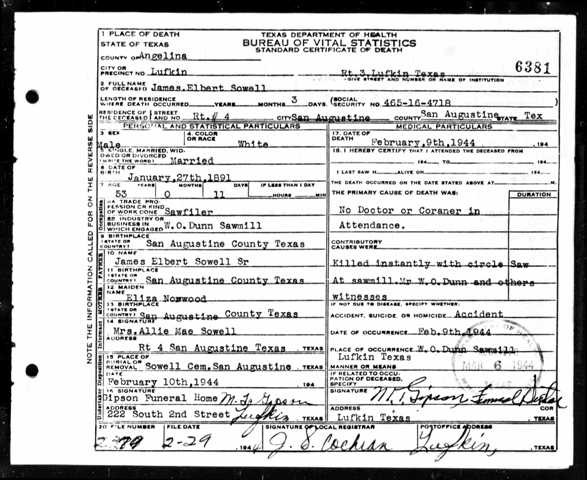 1 PLACE OF DEATH
STATE OF TEXAS
TEXAS DEPARTMENT OF HEALTH
BUREAU OF VITAL STATISTICS
STANDARD CERTIFICATE OF DEATH
COUNTY OF Angelina
CITY OR PRECINCT NO Lufkin
Rt.3,Lufkin Texas
GIVE STREET AND NUMBER OR NAME OF INSTITUTION
6381
2 FULL NAME OF DECEASED James Elbert Sowell
LENGTH OF RESIDENCE WHERE DEATH OCCURRED YEARS MONTHS 3 DAYS
(SOCIAL SECURITY NO 465-16-4718
RESIDENCE OF THE DECEASED STREET AND NO Rt.# 4 CITY San Augustine COUNTY San Augustine STATE Tex
PERSONAL AND STATISTICAL PARTICULARS
MEDICAL PARTICULARS
3 SEX Male
4 COLOR OR RACE White
5 SINGLE, MARRIED, WIDOWED OR DIVORCED (WRITE THE WORD) Married
6 DATE OF BIRTH January,27th,1891
7 AGE YEARS MONTHS DAYS IF LESS THAN 1 DAY
53 0 11 HOURS MIN
8A TRADE PROFESSION OR KIND OF WORK DONE Sawfiler
8B INDUSTRY OR BUSINESS IN WHICH ENGAGED W.O.Dunn Sawmill
9 BIRTHPLACE (STATE OR COUNTRY) San Augustine County Texas
10 NAME James Elbert Sowell Sr
11 BIRTHPLACE (STATE OR COUNTRY) San Augustine County Texas
12 MAIDEN NAME Eliza Norwood
13 BIRTHPLACE (STATE OR COUNTRY) San Augustine County Texas
14 SIGNATURE Mrs.Allie Mae Sowell
ADDRESS Rt 4 San Augustine Texas TEXAS
15 PLACE OF BURIAL OR REMOVAL Sowell Cem.San Augustine TEXAS
DATE February 10th,1944 194
16 SIGNATURE Gipson Funeral Home M. T. Gipson
ADDRESS 222 South 2nd Street Lufkin TEXAS
17. DATE OF DEATH February,9th,1944 194
18. I HEREBY CERTIFY THAT I ATTENDED THE DECEASED FROM
194 TO 194
I LAST SAW H ALIVE ON 194
THE DEATH OCCURRED ON THE DATE STATED ABOVE AT M.
THE PRIMARY CAUSE OF DEATH WAS:
DURATION
No Doctor or Coraner in
Attendance.
CONTRIBUTORY CAUSES WERE:
Killed instantly with circle Saw
At sawmill.Mr W.O.Dunn and others
witnesses
IF NOT DUE TO DISEASE, SPECIFY WHETHER:
ACCIDENT, SUICIDE OR HOMICIDE Accident
DATE OF OCCURRENCE Feb.9th,1944
PLACE OF OCCURRENCE W.O.Dunn Sawmill
Lufkin Texas
MANNER OR MEANS
IF RELATED TO OCCUPATION OF DECEASED, SPECIFY
SIGNATURE M. T. Gipson Funeral
ADDRESS Lufkin Texas COR TEXAS
20 FILE NUMBER
FILE DATE 2-29 194
SIGNATURE OF LOCAL REGISTRAR J. S. Cochran
POSTOFFICE ADDRESS Lufkin, TEXAS
NOTE THE INFORMATION CALLED FOR ON THE REVERSE SIDE
MAR 6 1944